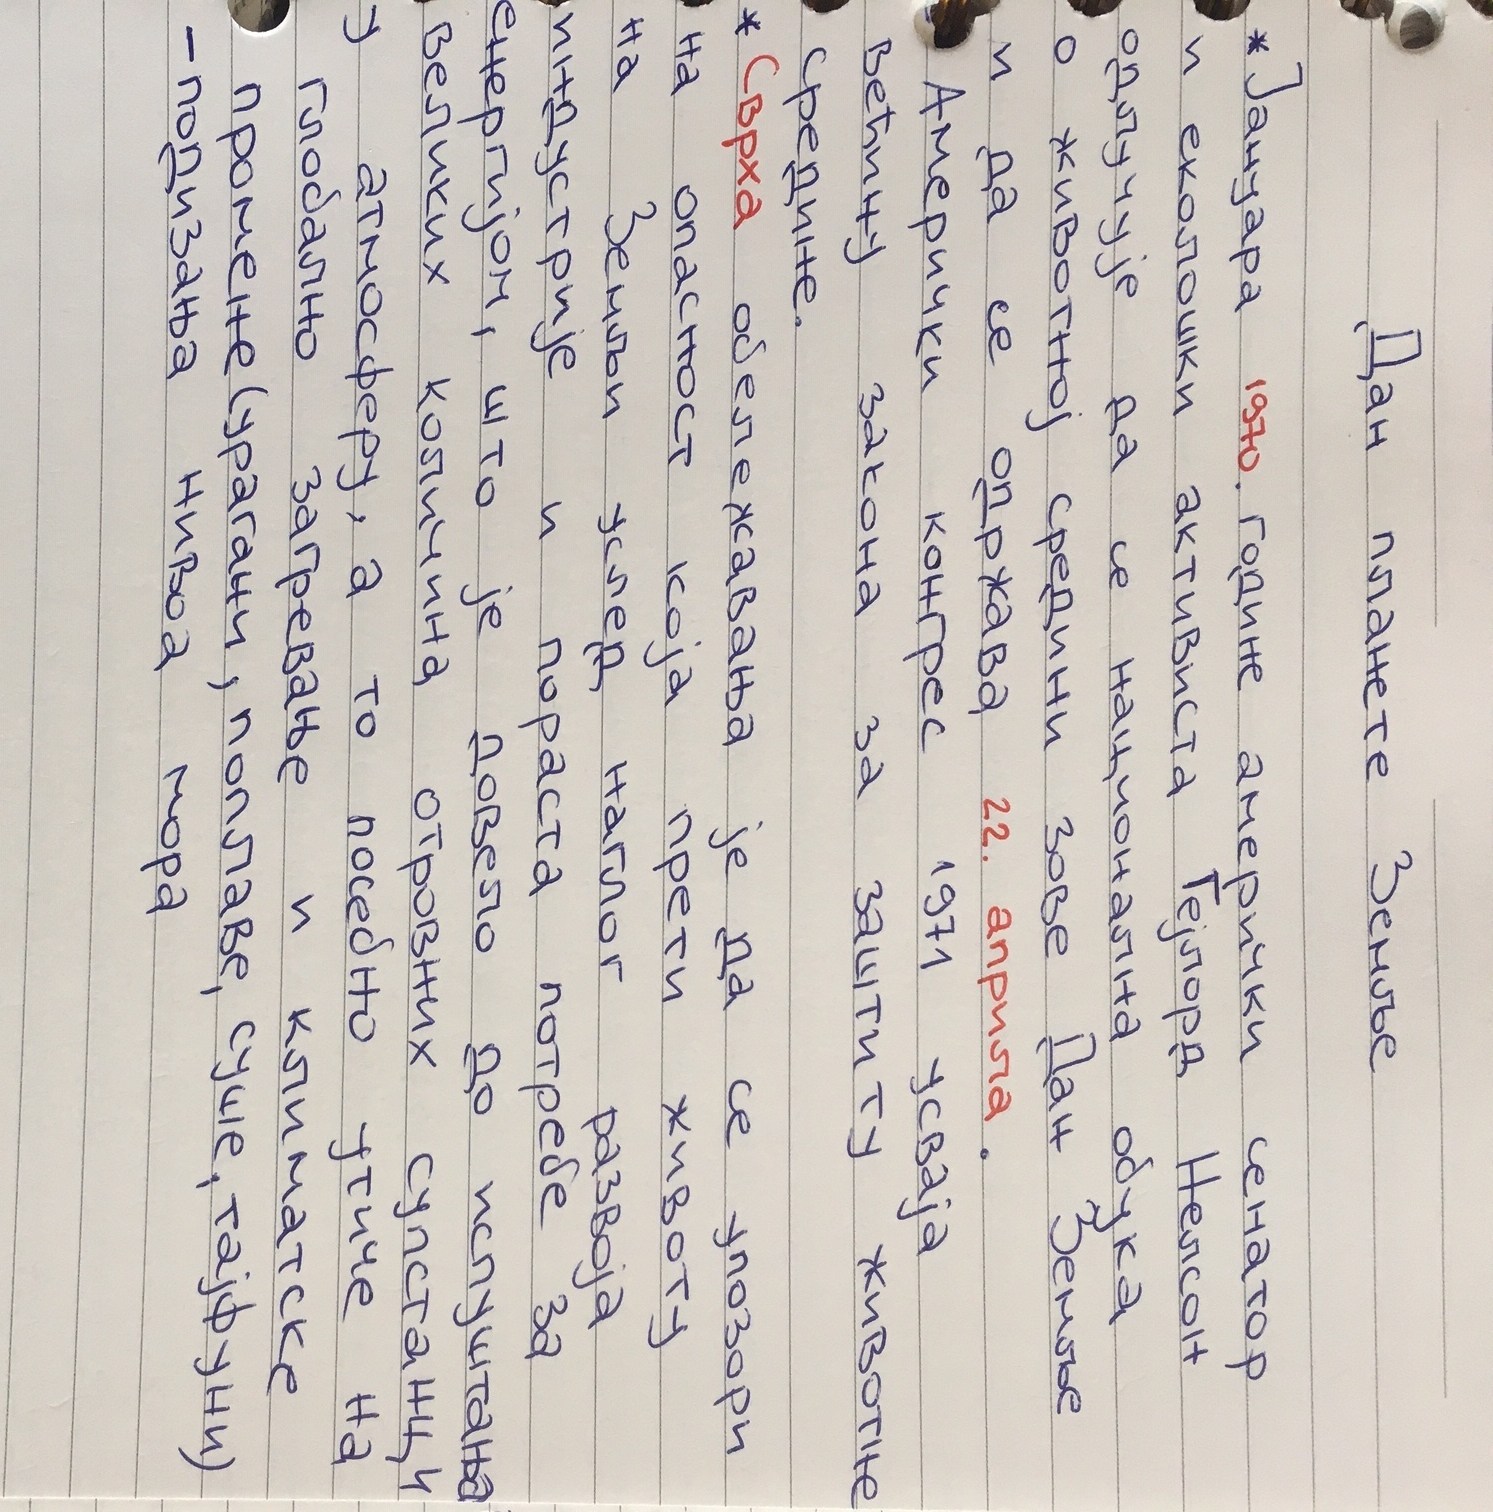 Дан планете Земље
*Јануара 1970. године амерички сенатор
и еколошки активиста Гејлорд Нелсон
одлучује да се национална обука
о животној средини зове Дан Земље
и да се одржава 22. априла.
Амерички конгрес 1971 усваја
већину закона за заштиту животне
средине.
*Сврха обележавања је да се упозори
на опасност која прети животу
на Земљи услед наглог развоја
индустрије и пораста потребе за
енергијом, што је довело до испуштања
великих количина отровних супстанци
у атмосферу, а то посебно утиче на
глобално загревање и климатске
промене(урагани, поплаве, суше, тајфуни)
-подизања нивоа мора